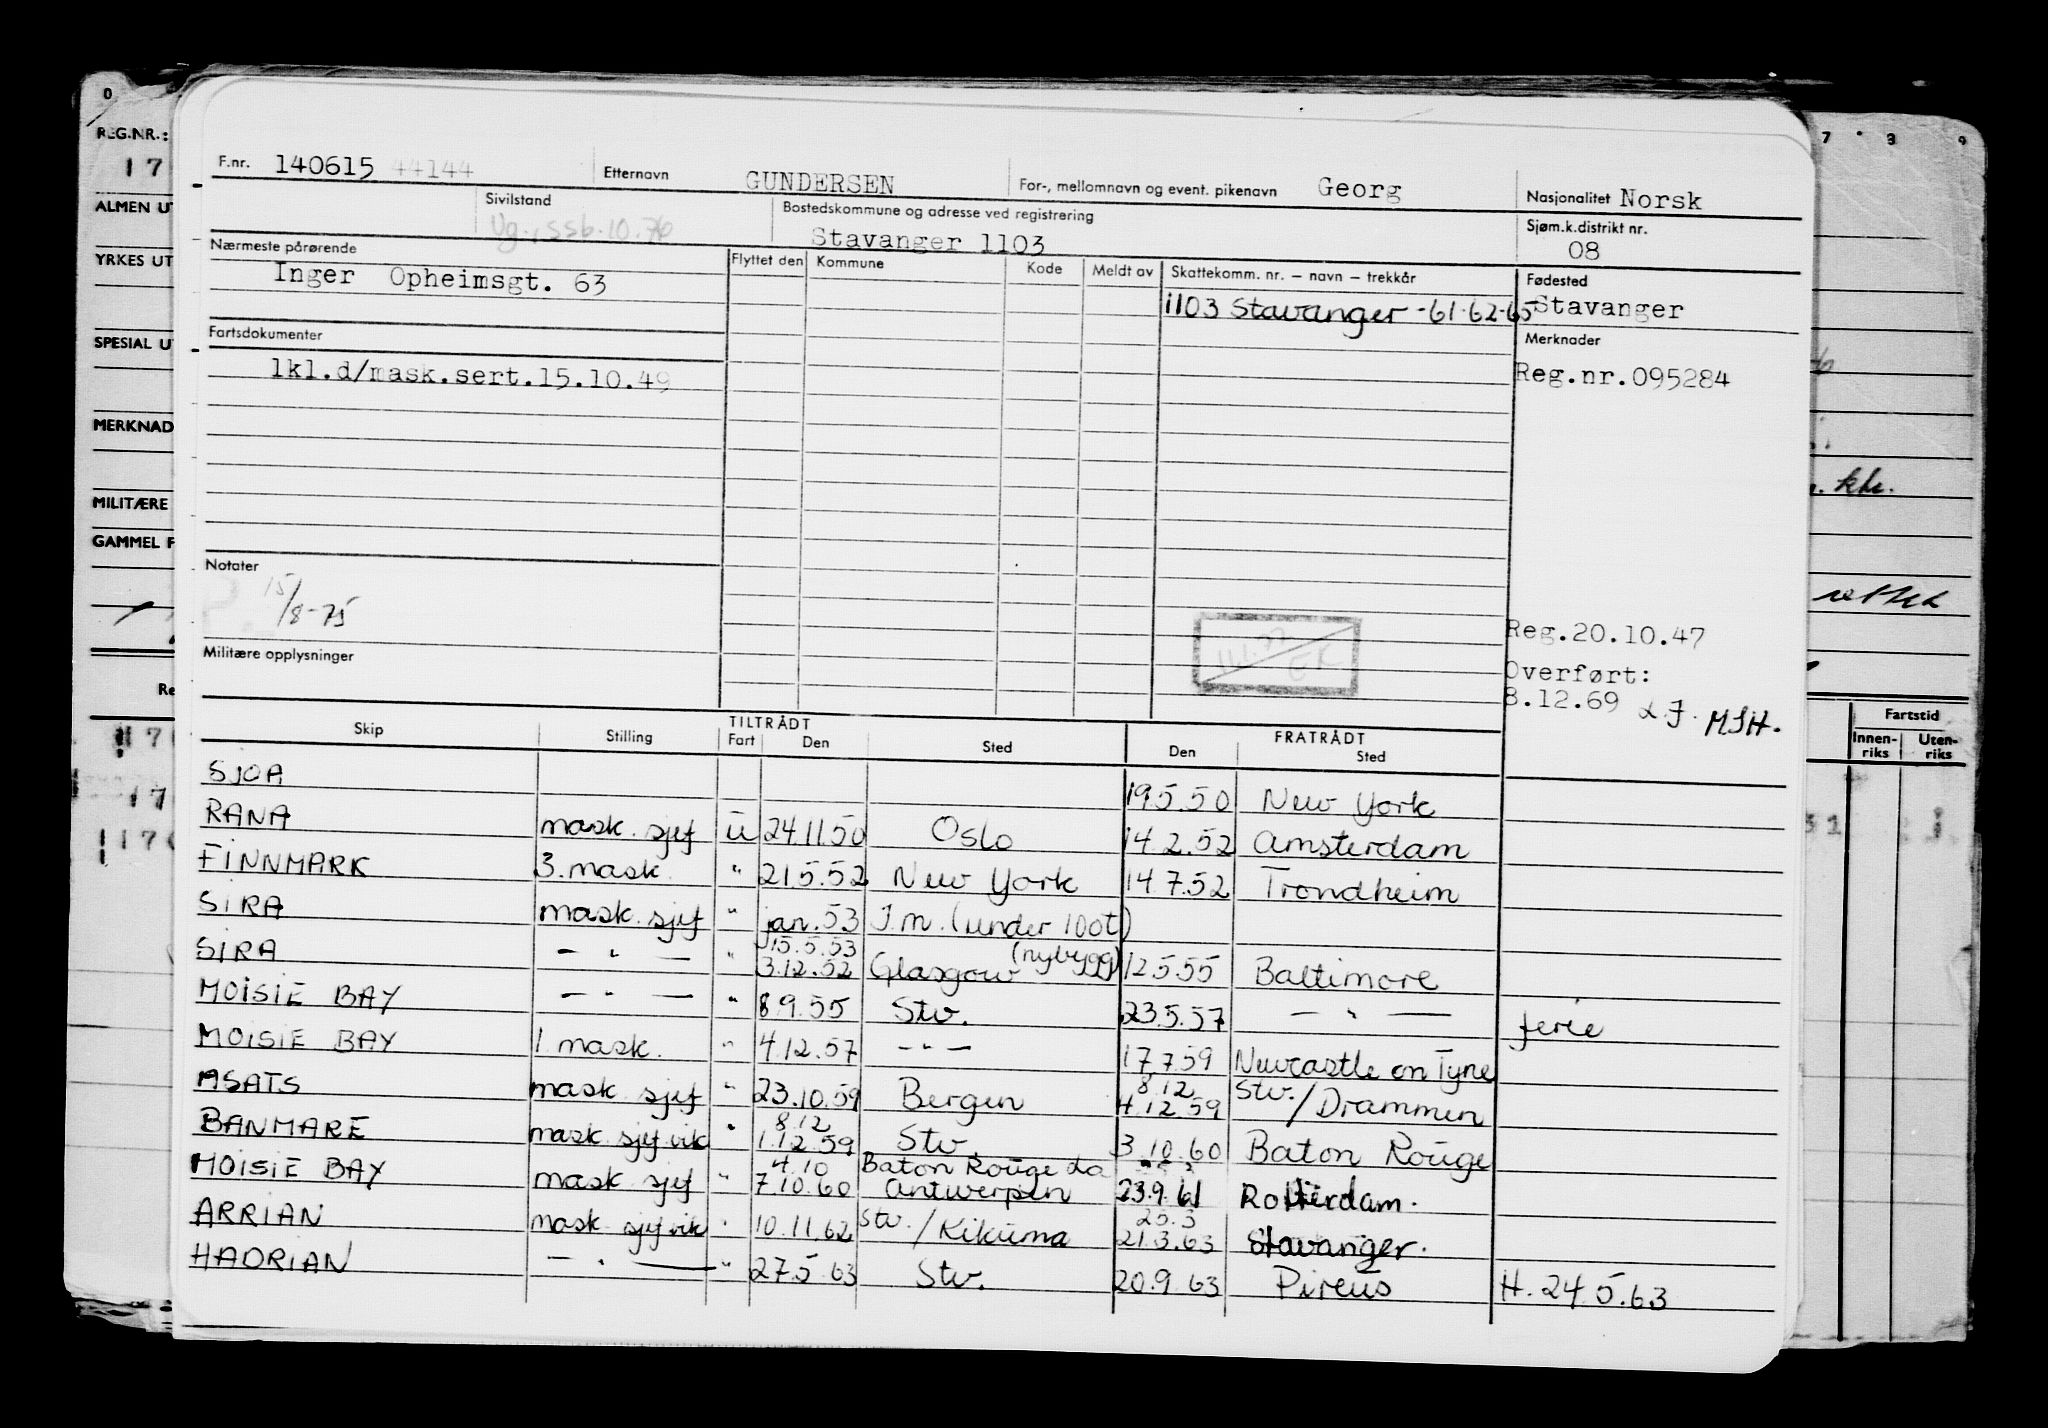 F.nr. 140615 44144 Etternavn GUNDERSEN For-, mellomnavn og event. pikenavn Georg Nasjonalitet Norsk
Sivilstand Ug., ssb.10.76 Bostedskommune og adresse ved registrering Stavanger 1103 Sjøm.k.distrikt nr. 08
Nærmeste pårørende Flyttet den Kommune Kode Meldt av Skattekomm. nr. – navn – trekkår Fødested
Inger Opheimsgt. 63 1103 Stavanger -61-62-65 Stavanger
Fartsdokumenter Merknader
1kl.d/mask.sert.15.10.49 Reg.nr.095284
Notater
15/8-75
Reg.20.10.47
Militære opplysninger
Overført:
8.12.69 MSH.
Skip Stilling TILTRÅDT Fart Den Sted FRATRÅDT Den Sted
SJOA 19.5.50 New York
RANA mask. sjef u 24.11.50 Oslo 14.2.52 Amsterdam
FINNMARK 3. mask. " 21.5.52 New York 14.7.52 Trondheim
SIRA mask. sjef " jan. 53 I.m. (under 100t)
SIRA — " — " 15.5.53 3.12.52 Glasgow (nybygg) 12.5.55 Baltimore
MOISIE BAY — " — " 8.9.55 Stv. 23.5.57 — " — ferie
MOISIE BAY 1. mask. " 4.12.57 — " — 17.7.59 Newcastle on Tyne
ASATS mask sjef " 23.10.59 Bergen 8.12 4.12.59 Stv./Drammen
BANMARE mask sjef vik " 8.12 1.12.59 Stv. 3.10.60 Baton Rouge
MOISIE BAY mask sjef " 4.10 7.10.60 Baton Rouge La Antwerpen 23.9.61 Rotterdam.
ARRIAN mask sjef vik " 10.11.62 Stv./Kikuma 25.3 21.3.63 Stavanger.
HADRIAN — " — " 27.5.63 Stv. 20.9.63 Pireus H. 24.5.63
REG.NR.:
ALMEN UT
YRKES UT
SPESIAL UT
MERKNAD
MILITÆRE
GAMMEL F
Fartstid
Innen-riks Uten-riks